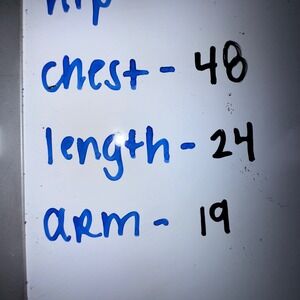 hip
chest - 48
length - 24
arm - 19